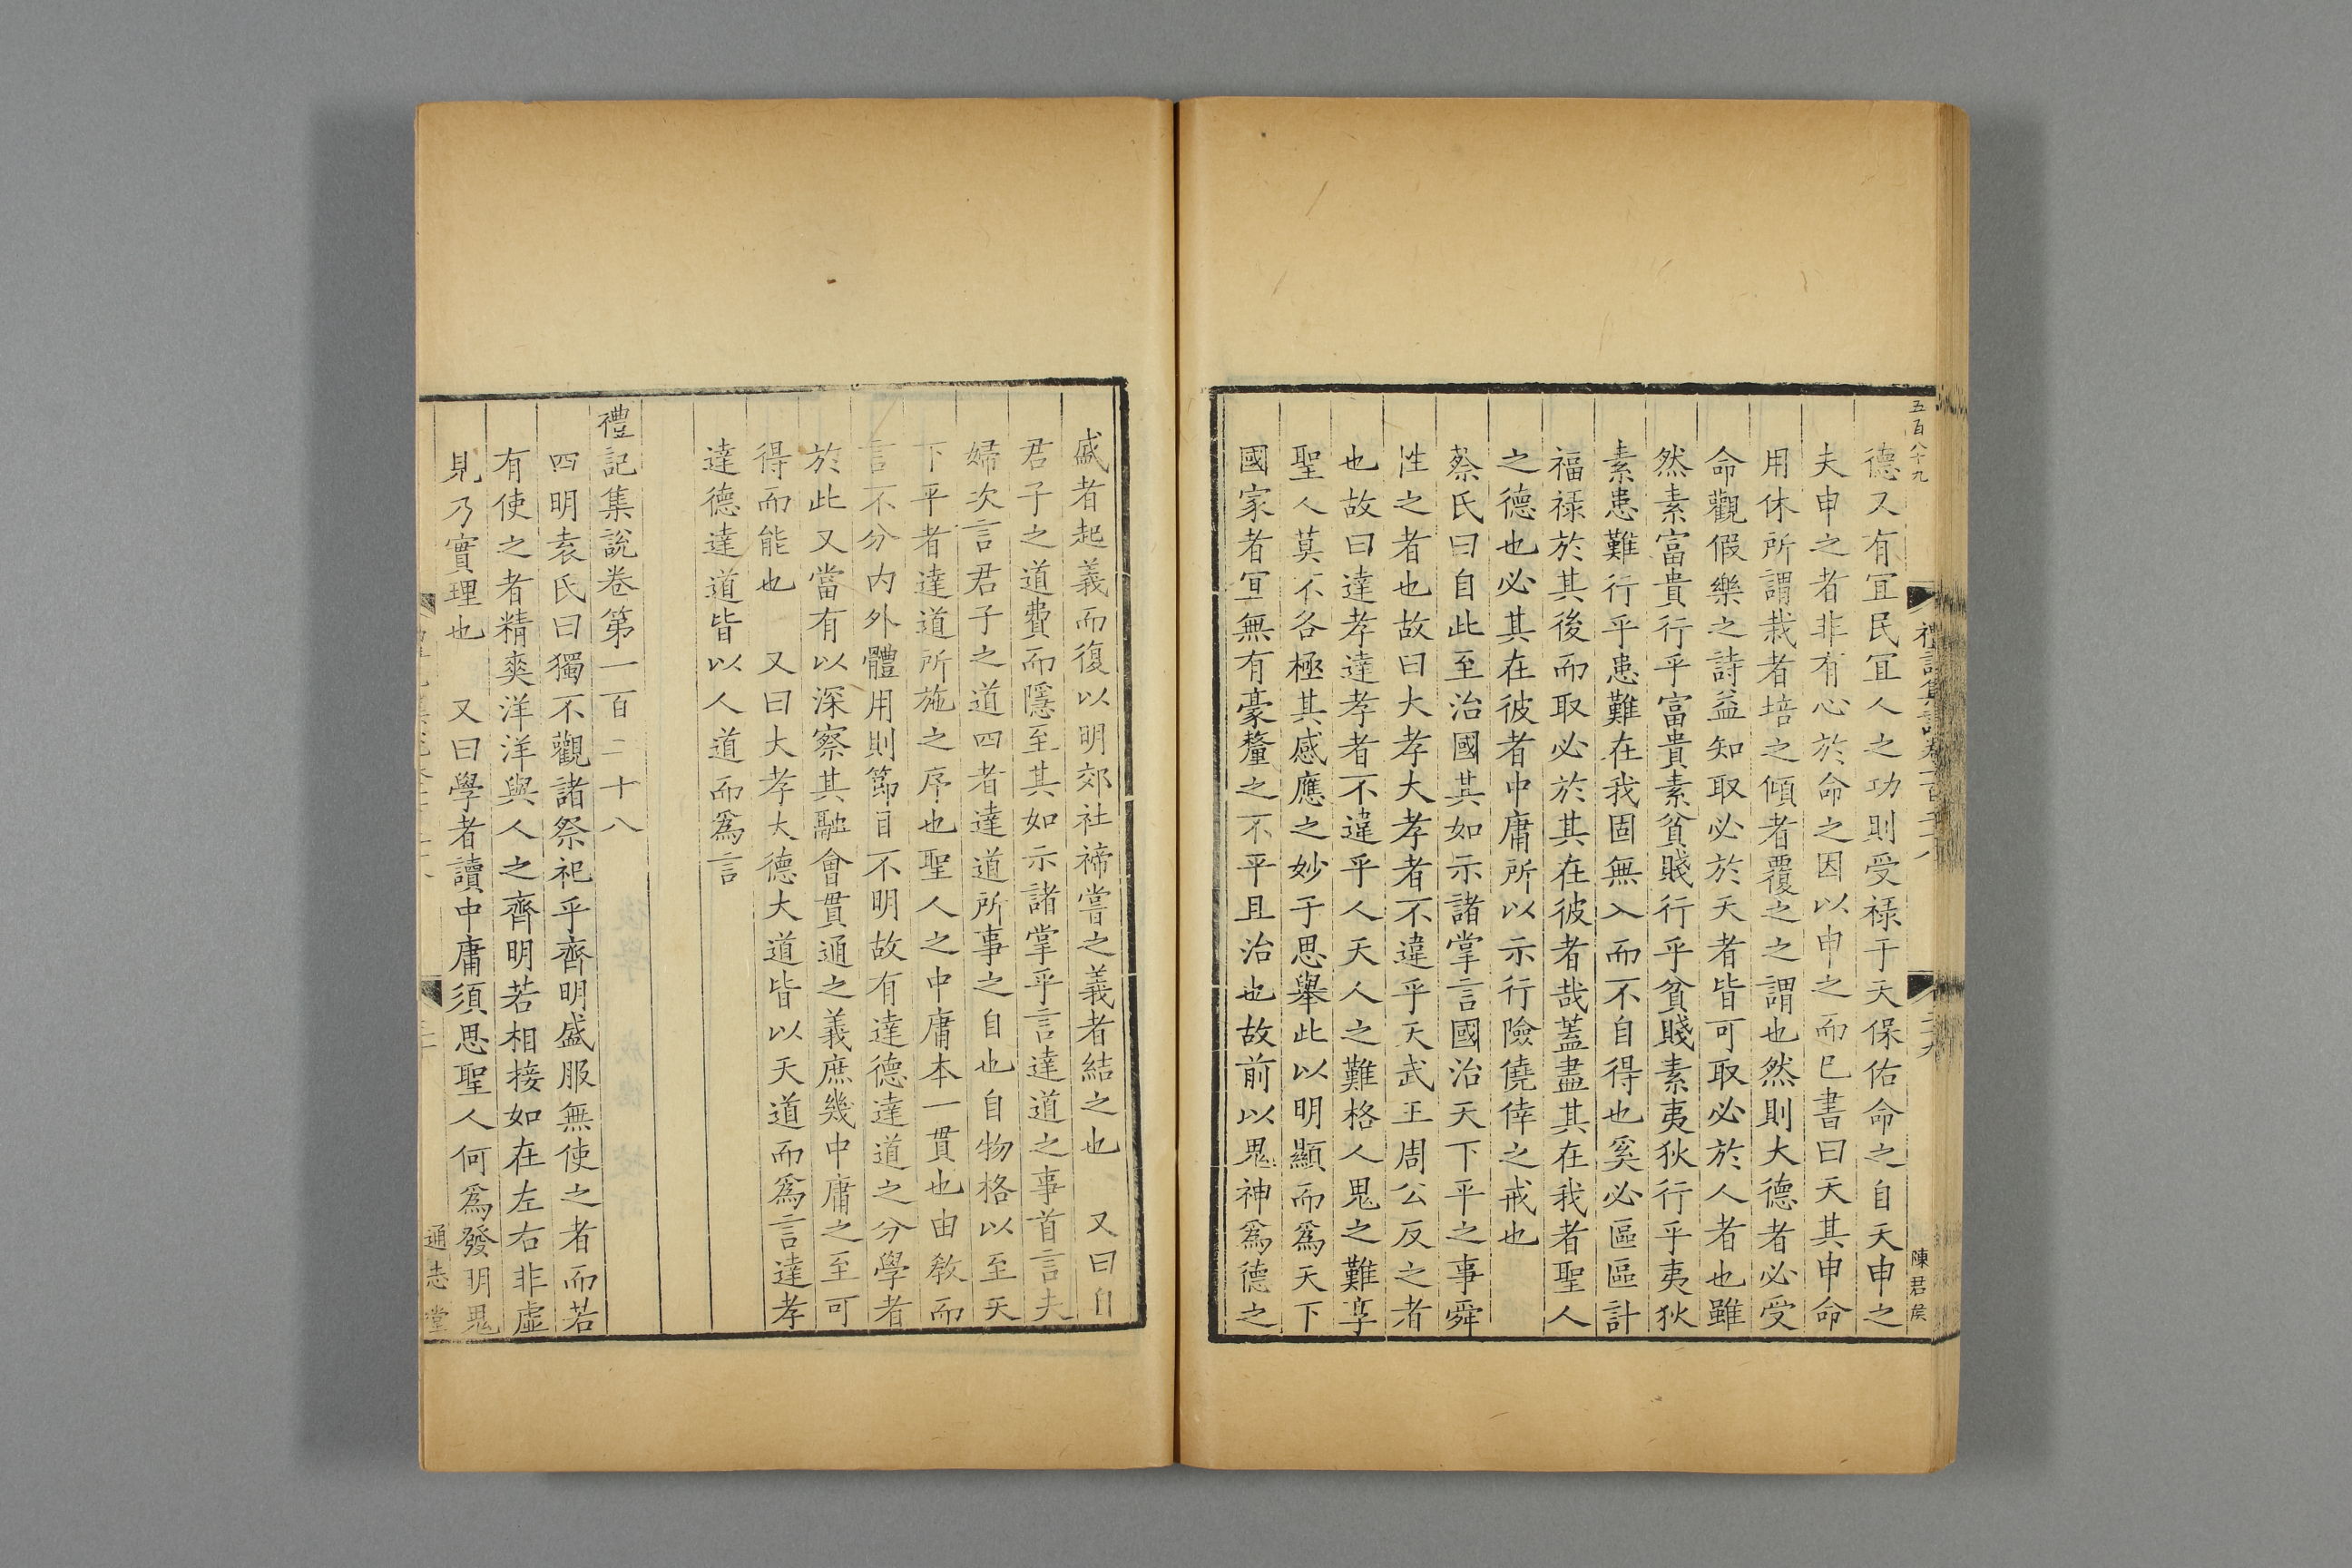 五百八十九
禮記集說卷一百二十八
二十九
陳君侯
德又有宜民宜人之功則受禄于天保佑命之自天申之
夫申之者非有心於命之因以申之而已書曰天其申命
用休所謂栽者培之傾者覆之之謂也然則大德者必受
命觀假樂之詩益知取必於天者皆可取必於人者也雖
然素富貴行乎富貴素貧賤行乎貧賤素夷狄行乎夷狄
素患難行乎患難在我固無入而不自得也奚必區區計
福禄於其後而取必於其在彼者哉蓋盡其在我者聖人
之德也必其在彼者中庸所以示行險僥倖之戒也
蔡氏曰自此至治國其如示諸掌言國治天下平之事舜
性之者也故曰大孝大孝者不違乎天武王周公反之者
也故曰達孝達孝者不違乎人天人之難格人鬼之難享
聖人莫不各極其感應之妙于思舉此以明顯而爲天下
國家者宜無有豪釐之不平且治也故前以鬼神爲德之
盛者起義而復以明郊社禘嘗之義者結之也　又曰自
君子之道費而隱至其如示諸掌乎言達道之事首言夫
婦次言君子之道四者達道所事之自也自物格以至天
下平者達道所施之序也聖人之中庸本一貫也由敎而
言不分内外體用則節目不明故有達德達道之分學者
於此又當有以深察其融會貫通之義庶幾中庸之至可
得而能也　又曰大孝大德大道皆以天道而爲言達孝
達德達道皆以人道而爲言
禮記集說卷第一百二十八
四明袁氏曰獨不觀諸祭祀乎齊明盛服無使之者而若
有使之者精爽洋洋與人之齊明若相接如在左右非虛
見乃實理也　又曰學者讀中庸須思聖人何爲發明鬼
通志堂